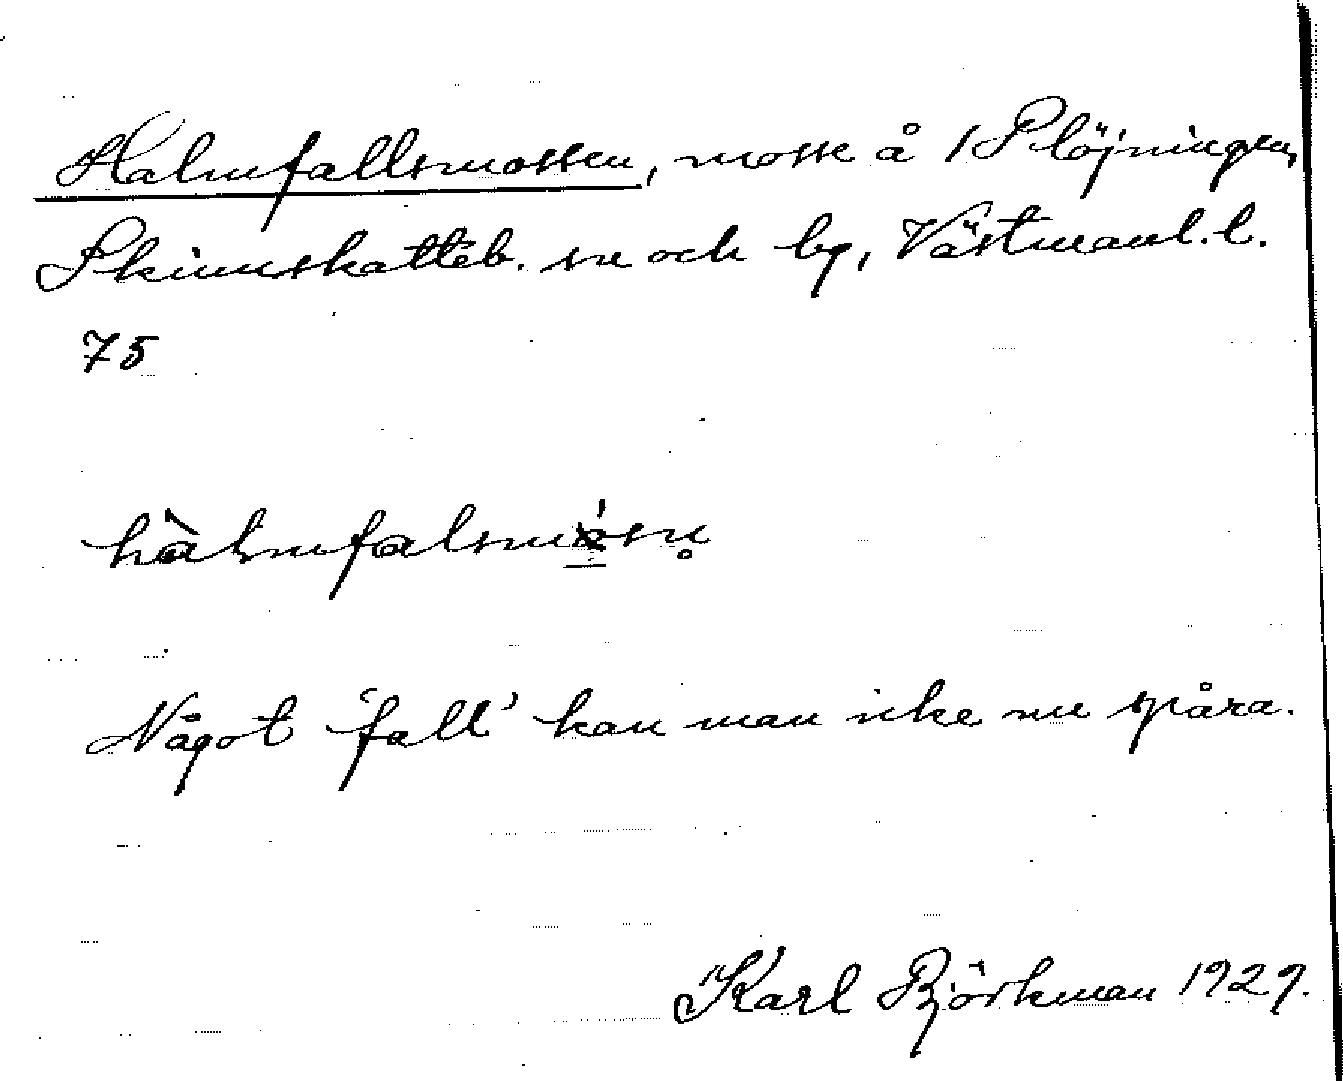 Halmfallsmossen, mosse å 1 Plöjningen,
Skinnskatteb. sn och bg, Västmanl. l.
75
hàlmfalsmósn̥
Något 'fall' kan man icke nu spåra.
Karl Björkman 1929.